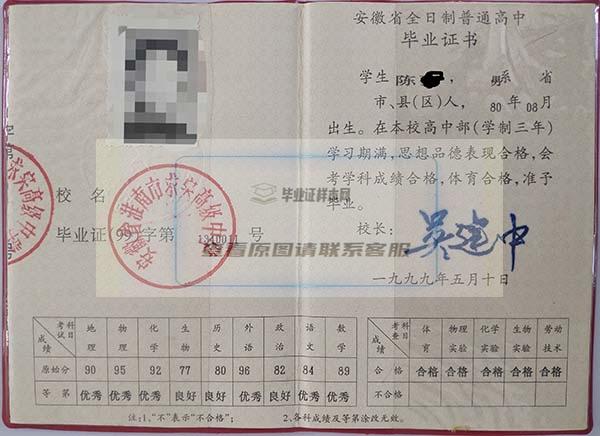 安徽省全日制普通高中
毕业证书
学生 陈 , 男系 省
市、县(区)人, 80 年 08 月
出生。在本校高中部(学制三年)
学习期满, 思想品德表现合格, 会
考学科成绩合格, 体育合格, 准予
毕业。
校长: 吴建中
一九九九年五月十日
校名
毕业证 99 字第 号
毕业证样本网
查看原图请联系客服
考试科目 成绩 地理 物理 化学 生物 历史 外语 政治 语文 数学
原始分 90 95 92 77 80 96 82 84 89
等第 优秀 优秀 优秀 良好 良好 优秀 良好 优秀 优秀
考查科目 成绩 体育 物理实验 化学实验 生物实验 劳动技术
合格 合格 合格 合格 合格 合格
不合格
注:1、“不”表示“不合格”; 2、各科成绩及等第涂改无效。